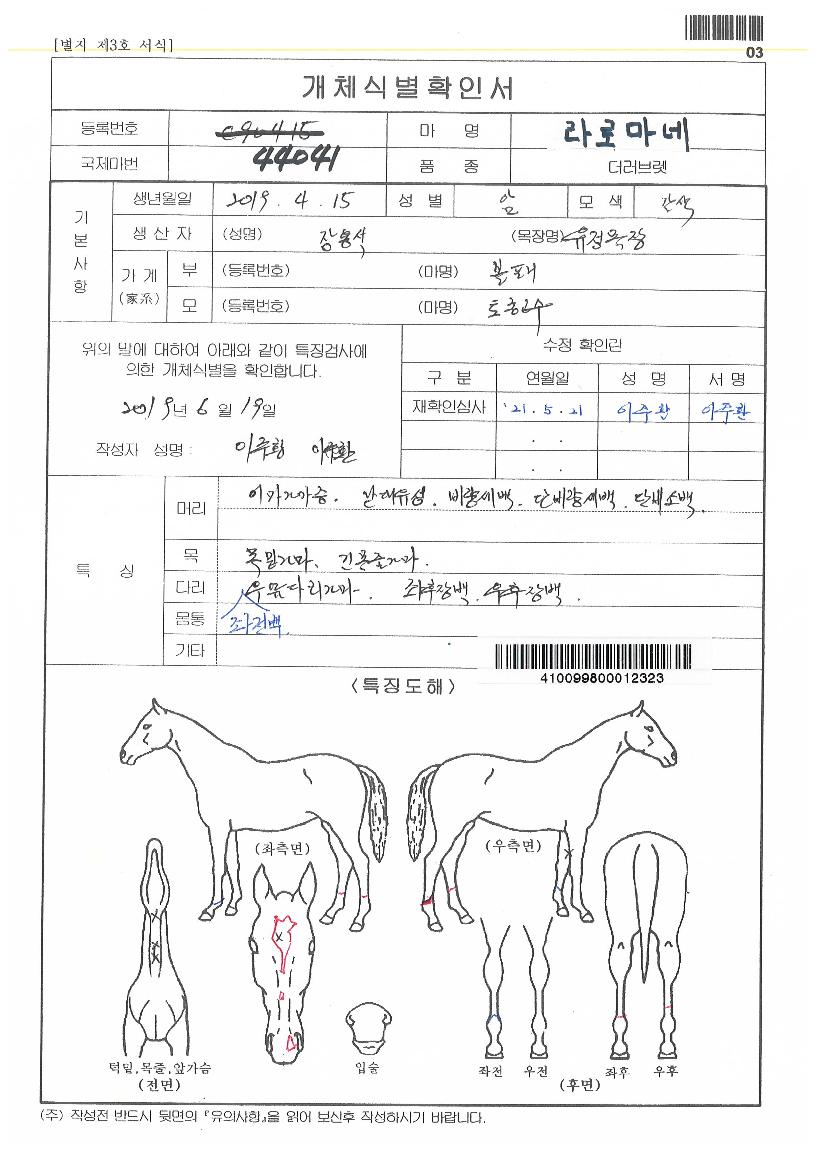 [별지 제3호 서식]
03
개체식별확인서
등록번호 c90415 마 명 라로마네
국제마번 44041 품 종 더러브렛
기본사항
생년월일 2019. 4. 15 성 별 암 모 색 갈색
생 산 자 (성명) 장용석 (목장명) 유정목장
가 계 (家系) 부 (등록번호) (마명) 볼포니
모 (등록번호) (마명)
위의 말에 대하여 아래와 같이 특징검사에
의한 개체식별을 확인합니다.
2019년 6 월 19일
작성자 성명 : 이주환 이주환
수정 확인란
구 분 연월일 성 명 서 명
재확인심사 '21. 5. 21 이주환 이주환
. .
. .
특 징
머리
목 목밑가마.
다리 좌후장백. 우후장백.
몸통 좌전백.
기타
410099800012323
<특징도해>
(좌측면) (우측면)
턱밑,목줄,앞가슴
(전면)
입술
좌전 우전 좌후 우후
(후면)
(주) 작성전 반드시 뒷면의 『유의사항』을 읽어 보신후 작성하시기 바랍니다.